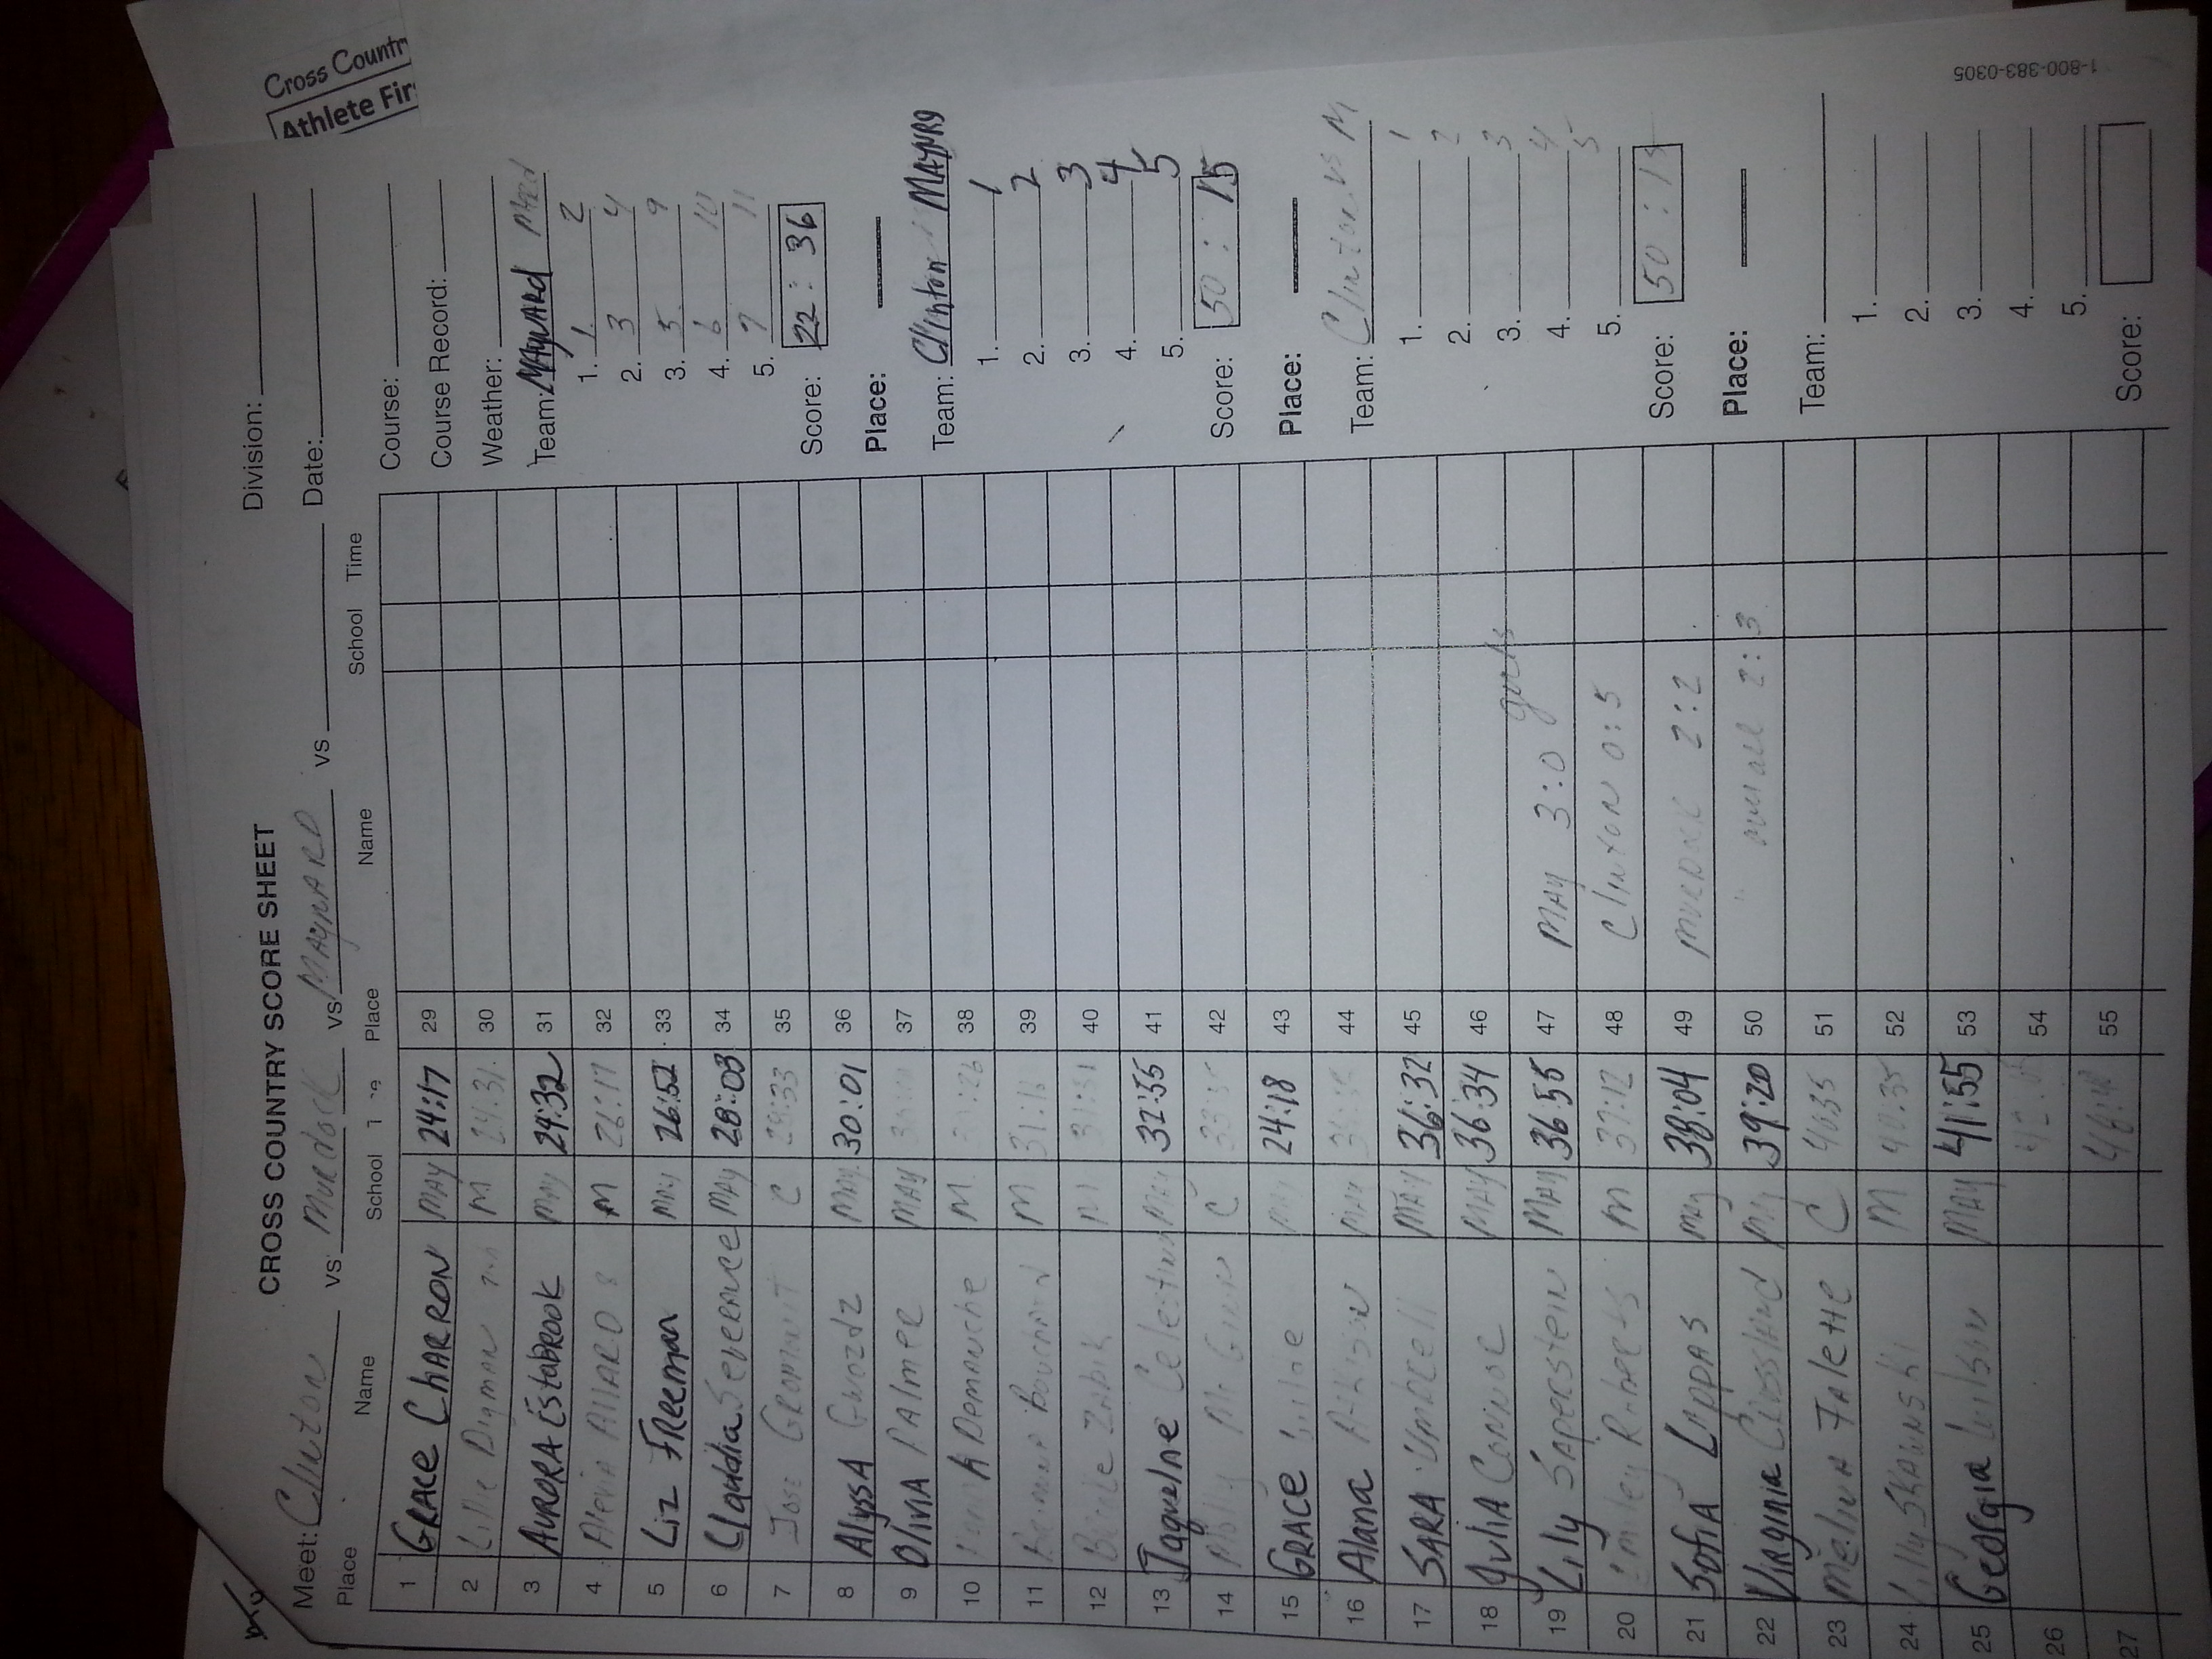 CROSS COUNTRY SCORE SHEET
Division:
Meet: Clinton vs Murdock vs MAYNARD vs
Date:
Place Name School Place Name School Time
Cross Countr
Athlete Fir
1 GRACE CHARRON MAY 24:17 29
2 Lillie Digman M 24:31 30
3 AURORA EstaBROOK May 24:32 31
4 Alexia AllARD 8 M 26:17 32
5 Liz FReeman May 26:52 33
6 Claudia Severance MAY 28:03 34
7 C 28:33 35
8 AlyssA Gwozdz May 30:01 36
9 OliviA PAlmer MAY 37
10 Demanche M 38
11 Brianna Bouchard M 31:18 39
12 Zabik M 31:51 40
13 Jaquelne Celestino May 32:55 41
14 Molly C 42
15 GRACE May 24:18 43
16 Alana Atkinson May 44
17 SARA Umbrell MAY 36:32 45
18 JuliA Connor MAY 36:34 46
girls
19 Lily Saperstein May 36 55 47 MAY 3:0
20 Emiley Roberts M 37:12 48 Clinton 0:5
21 SofiA LAppAS May 38:04 49 MURDOCK 2:2
22 Virginia Crossland May 39:20 50 " overall 2:3
23 Melina FAlette C 4035 51
24 Lilly SKAWNSKI M 40:35 52
25 Georgia Wilson MAY 41:55 53
26 54
27 55
Course:
Course Record:
Weather:
Team: MAYNARD
1. 1. 2
2. 3 4
3. 5. 9
4. 6 10
5. 7 11
Score: 22 : 36
Place:
Team: Clinton MAYNRD
1. 1
2. 2
3. 3
4. 4
5. 5
Score: 50 : 15
Place:
Team: Clinton vs M
1. 1
2. 2
3. 3
4. 4
5. 5
Score: 50 : 15
Place:
Team:
1.
2.
3.
4.
5.
Score:
1-800-383-0305